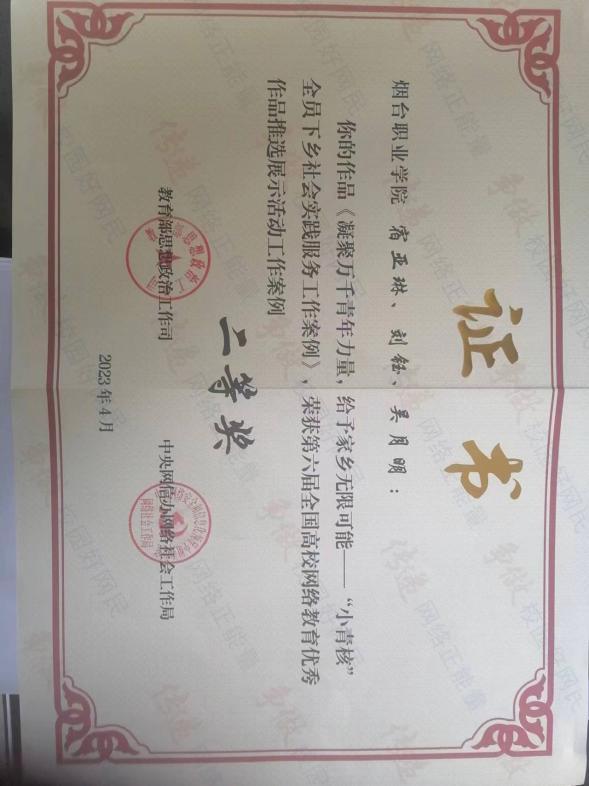 证书
烟台职业学院 宿亚琳、刘钰、吴月明：
你的作品《凝聚万千青年力量，给予家乡无限可能——“小青核”
全员下乡社会实践服务工作案例》，荣获第六届全国高校网络教育优秀
作品推选展示活动工作案例
二等奖
教育部思想政治工作司 中央网信办网络社会工作局
2023年4月